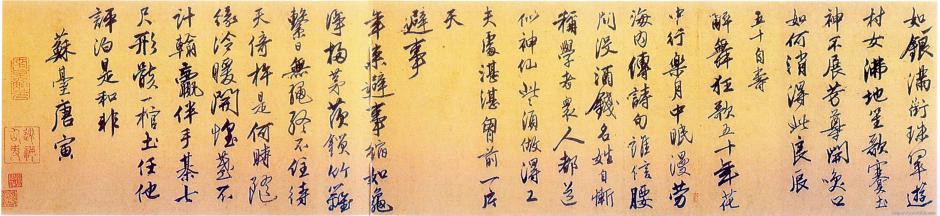 如銀滿街珠翠遊
村女沸地笙歌賽社
神不展芳尊開笑口
如何消得此良辰
五十自壽
醉舞狂歌五十年花
中行樂月中眠漫勞
海內傳詩句誰信腰
間沒酒錢名姓自慚
稱學者眾人都道
似神仙些須做得工
夫處湛湛胷前一片
天
避事
年來避事縮如龜
淨掃茅茨鎖竹籬
繫日無繩終不住待
天倚杵是何時隨
緣冷暖開懷盞不
計輸贏伴手棋七
尺形骸一棺土任他
評泊是和非
蘇臺唐寅